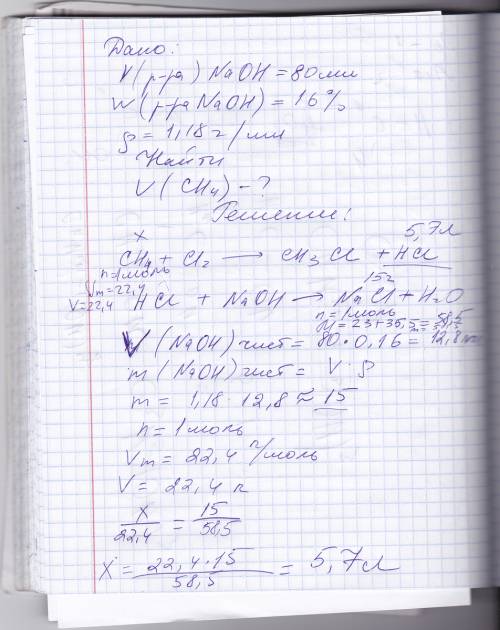 Дано:
V(р-ра) NaOH = 80 мл
W(р-ра NaOH) = 16%
ρ = 1,18 г/мл
Найти
V(CH4) - ?
Решение:
x 5,7л
CH4 + Cl2 → CH3Cl + HCl
n=1моль
Vm=22,4 15г
V=22,4 HCl + NaOH → NaCl + H2O
n=1моль
M=23+35,5=58,5
V(NaOH)чист = 80·0,16 = 12,8мл
m(NaOH)чист = V·ρ
m = 1,18·12,8 ≈ 15
n = 1моль
Vm = 22,4 л/моль
V = 22,4 л
x/22,4 = 15/58,5
x = 22,4·15/58,5 = 5,7л